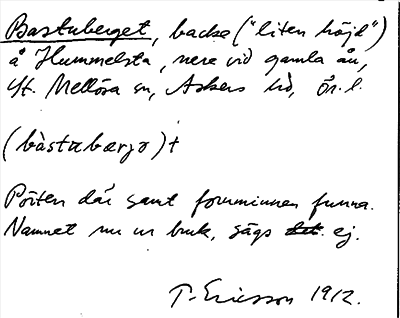 Bastuberget, backe ("liten höjd")
å Hummelsta, nere vid gamla ån,
St. Mellösa sn, Askers hd, Ör. l.
(bàstubærjə)t
Pörten där samt fornminnen funna.
Namnet nu ur bruk, sägs ej.
T. Ericsson 1912.